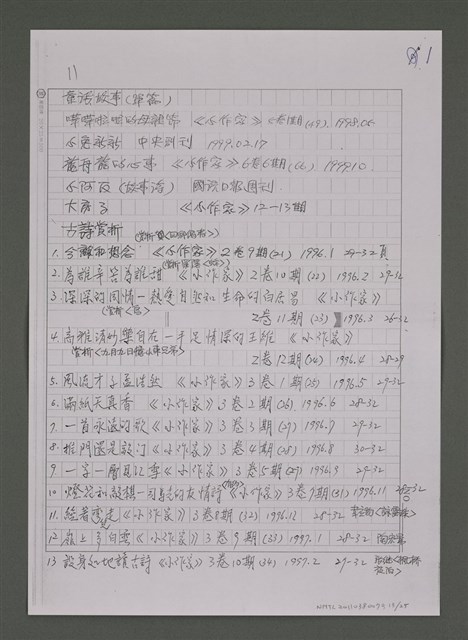 1
11
童話故事(單篇)
《小作家》(49). 1998.06
中央副刊 1999.02.17
《小作家》6卷6期(66) 1999.10
小阿灰(故事湯) 國語日報週刊
大房子 《小作家》12-13期
古詩賞析
1. 《小作家》2卷9期(21) 1996.1 29-32頁
2. 為誰辛苦為誰甜 《小作家》2卷10期(22) 1996.2 29-32
3. 深深的同情-熱愛自然和生命的白居易 《小作家》
2卷11期(23) 1996.3 26-32
4. 高雅清的樂自在-手足情深的王維 《小作家》
賞析<九月九日憶山東兄弟>
2卷12期(24) 1996.4 28-29
5. 風流才子孟浩然 《小作家》3卷1期(25) 1996.5 29-32
6. 滿紙天真香 《小作家》3卷2期(26) 1996.6 28-32
7. 一首永遠的歌《小作家》3卷3期(27) 1996.7 29-32
8. 推門還是敲門《小作家》3卷4期(28) 1996.8 30-32
9. 一字一層《小作家》3卷5期(29) 1996.9 29-32
10. 燈花和敲棋-司馬光的友情詩《小作家》3卷7期(31) 1996.11 28-32
11. 《小作家》3卷8期(32) 1996.12 28-32
12. 嶺上多白雲《小作家》3卷9期(33) 1997.1 28-32 陶宏景
13. 設身處地讀古詩《小作家》3卷10期(34) 1997.2 29-32 張繼<楓橋夜泊>